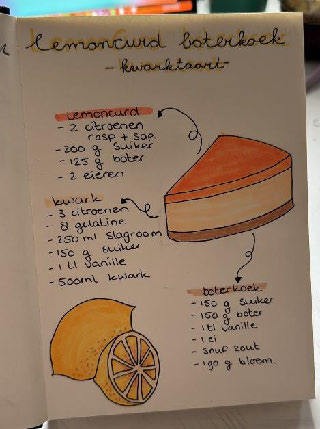 Lemoncurd boterkoek
- kwarktaart -
lemoncurd
- 2 citroenen
rasp + sap
- 200 g suiker
- 125 g boter
- 2 eieren
kwark
- 3 citroenen
- 8 gelatine
- 250 ml slagroom
- 150 g suiker
- 1 tl vanille
- 500ml kwark
boterkoek
- 150 g suiker
- 150 g boter
- 1 tl vanille
- 1 ei
- snuf zout
- 190 g bloem